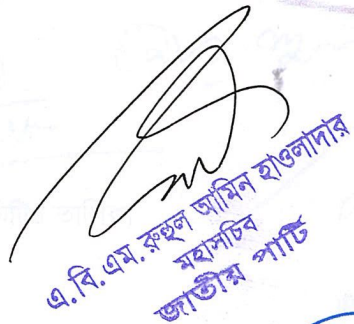 এ. বি. এম. রুহুল আমিন হাওলাদার
মহাসচিব
জাতীয় পার্টি